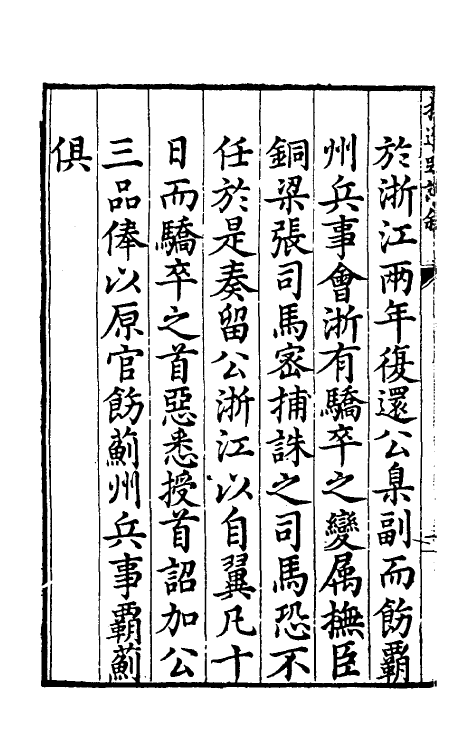 於浙江兩年復還公臬副而飭覇
州兵事會浙有驕卒之變属撫臣
銅梁張司馬密捕誅之司馬恐不
任於是奏留公浙江以自翼凡十
日而驕卒之首惡悉授首詔加公
三品俸以原官飭薊州兵事覇薊
俱